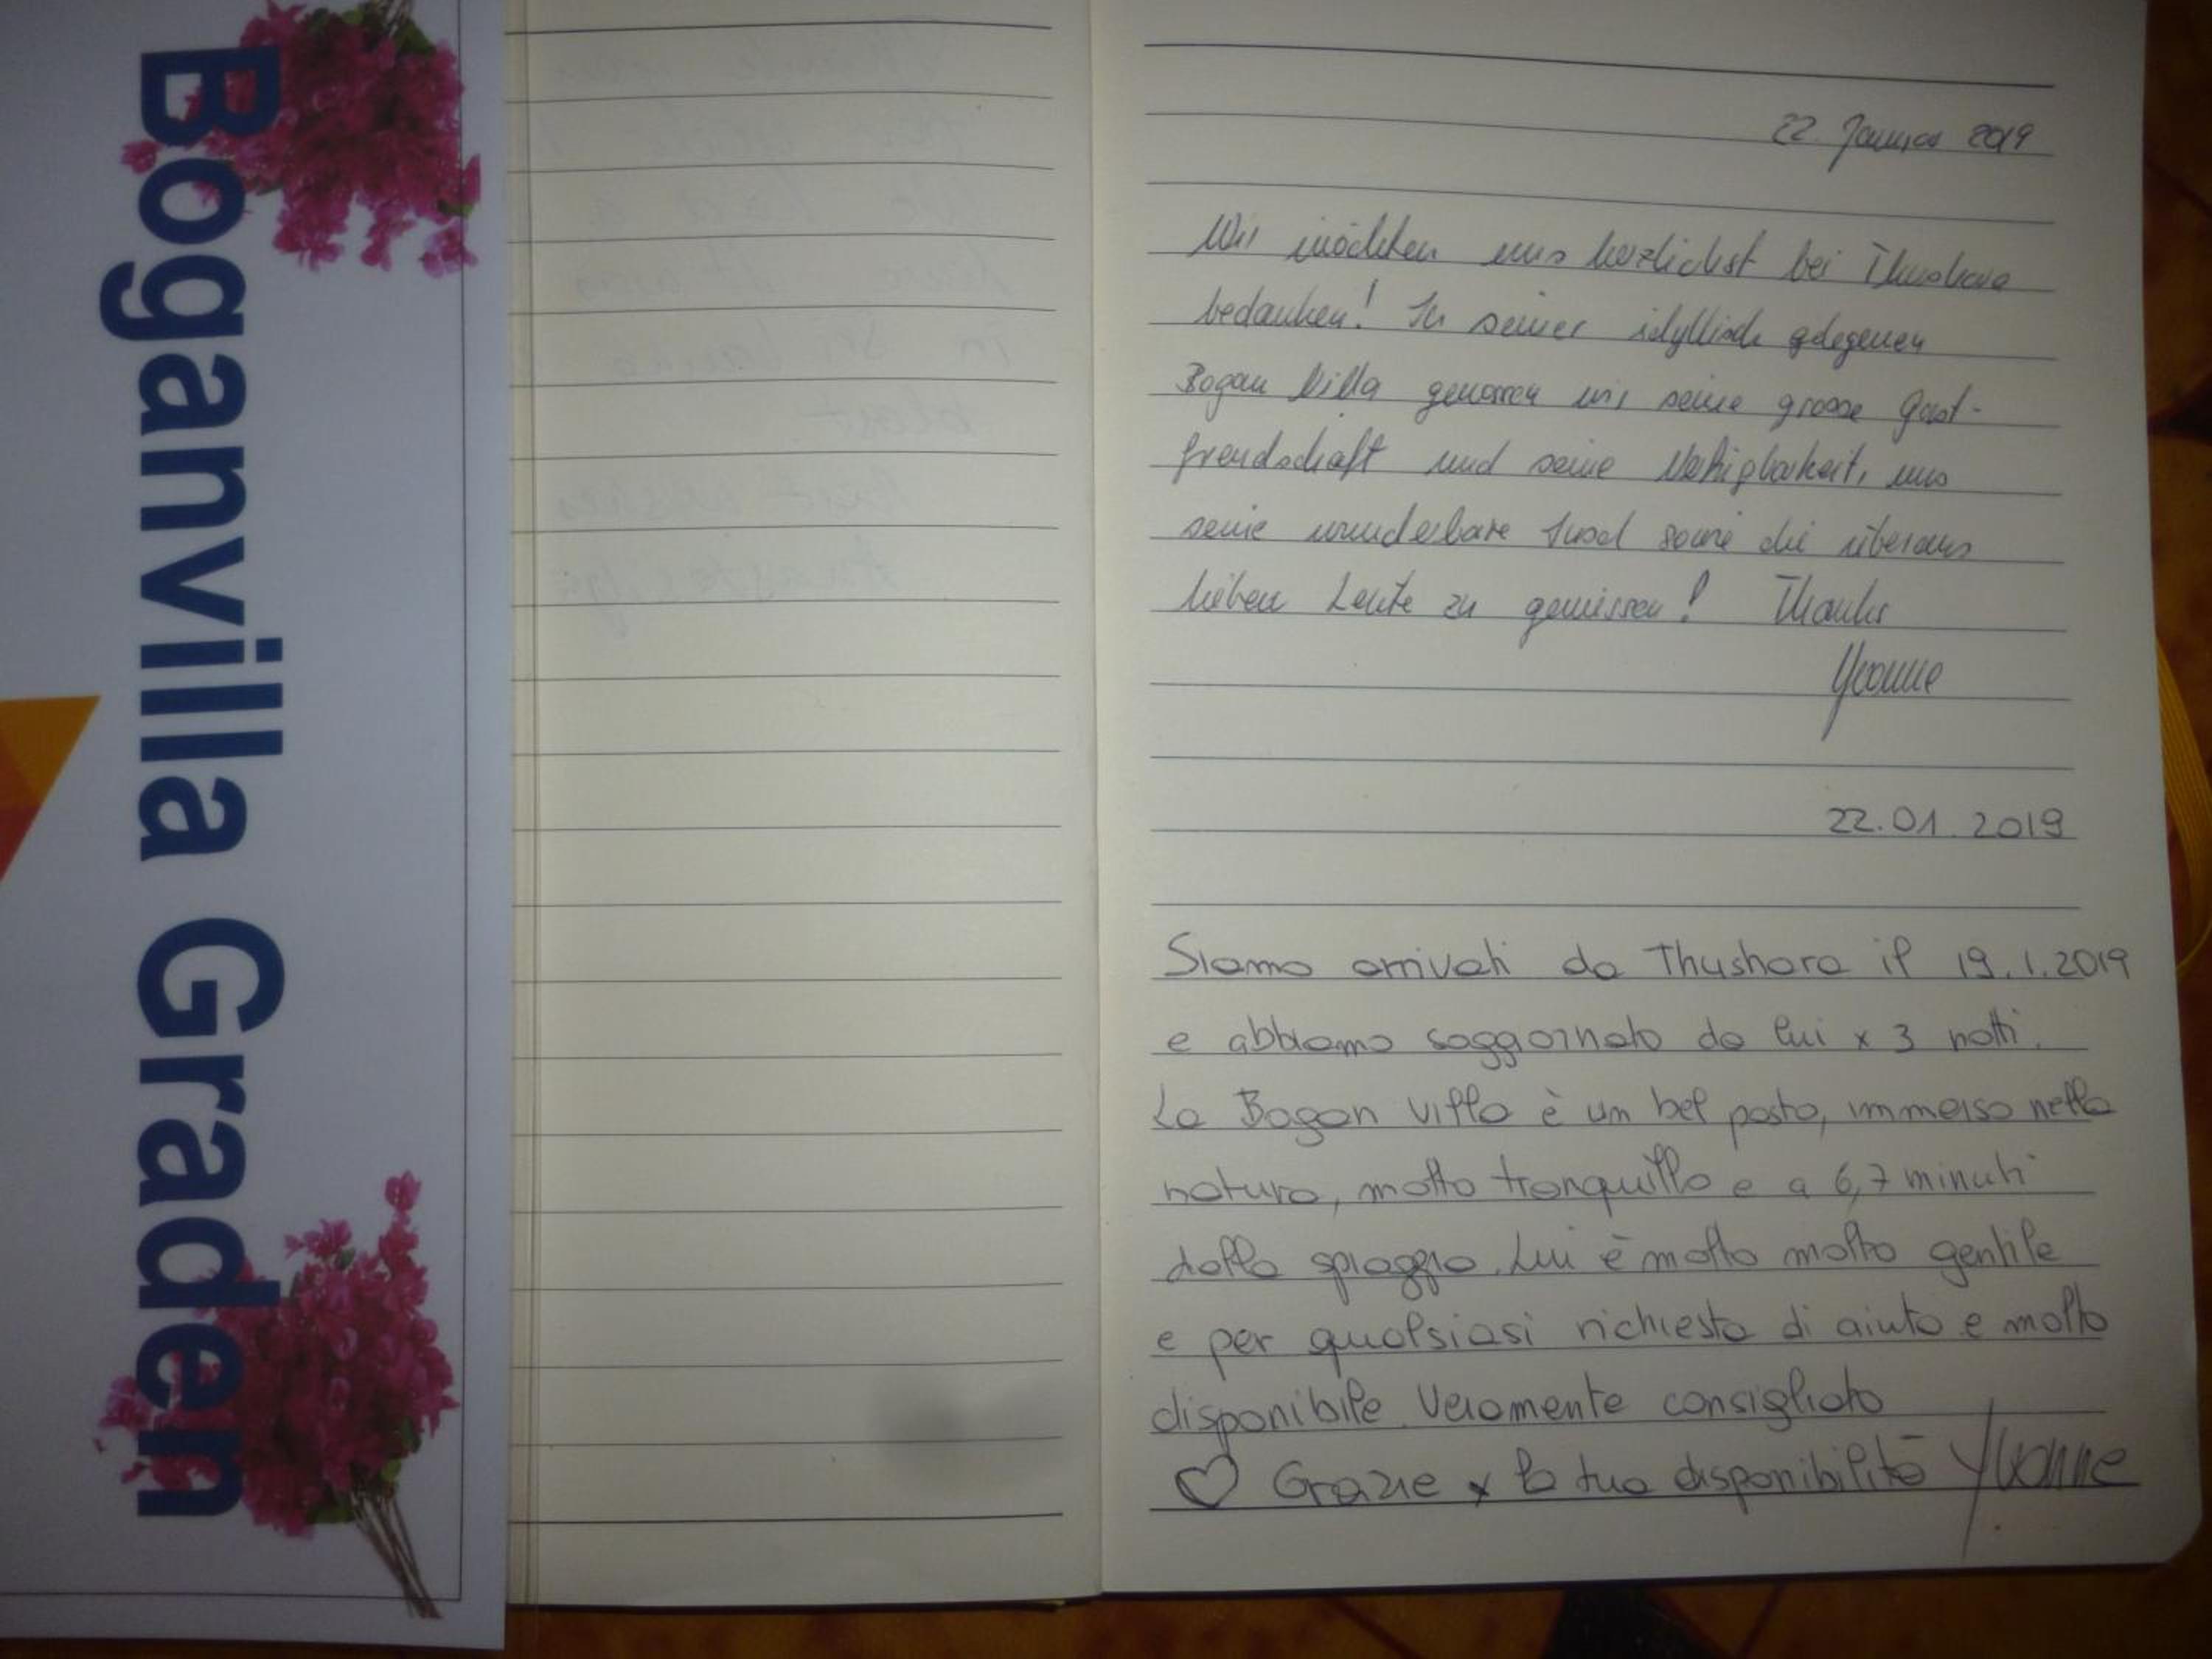 Boganvilla Graden
22. Januar 2019
Wir möchten uns herzlichst bei Thushara
bedanken! In seiner idyllisch gelegenen
Bogan Villa genossen wir seine grosse Gast-
freundschaft und seine
seine wunderbare Insel sowie die überaus
lieben Leute zu geniessen! Thanks
Yvonne
22.01.2019
Siamo arrivati da Thushara il 19.1.2019
e abbiamo soggiornato da lui x 3 notti.
La Bogan villa è un bel posto, immerso nella
natura, molto tranquillo e a 6,7 minuti
dalla spiaggia. Lui è molto molto gentile
e per qualsiasi richiesta di aiuto e molto
disponibile. Veramente consigliato
♡ Grazie x la tua disponibilità Yvonne